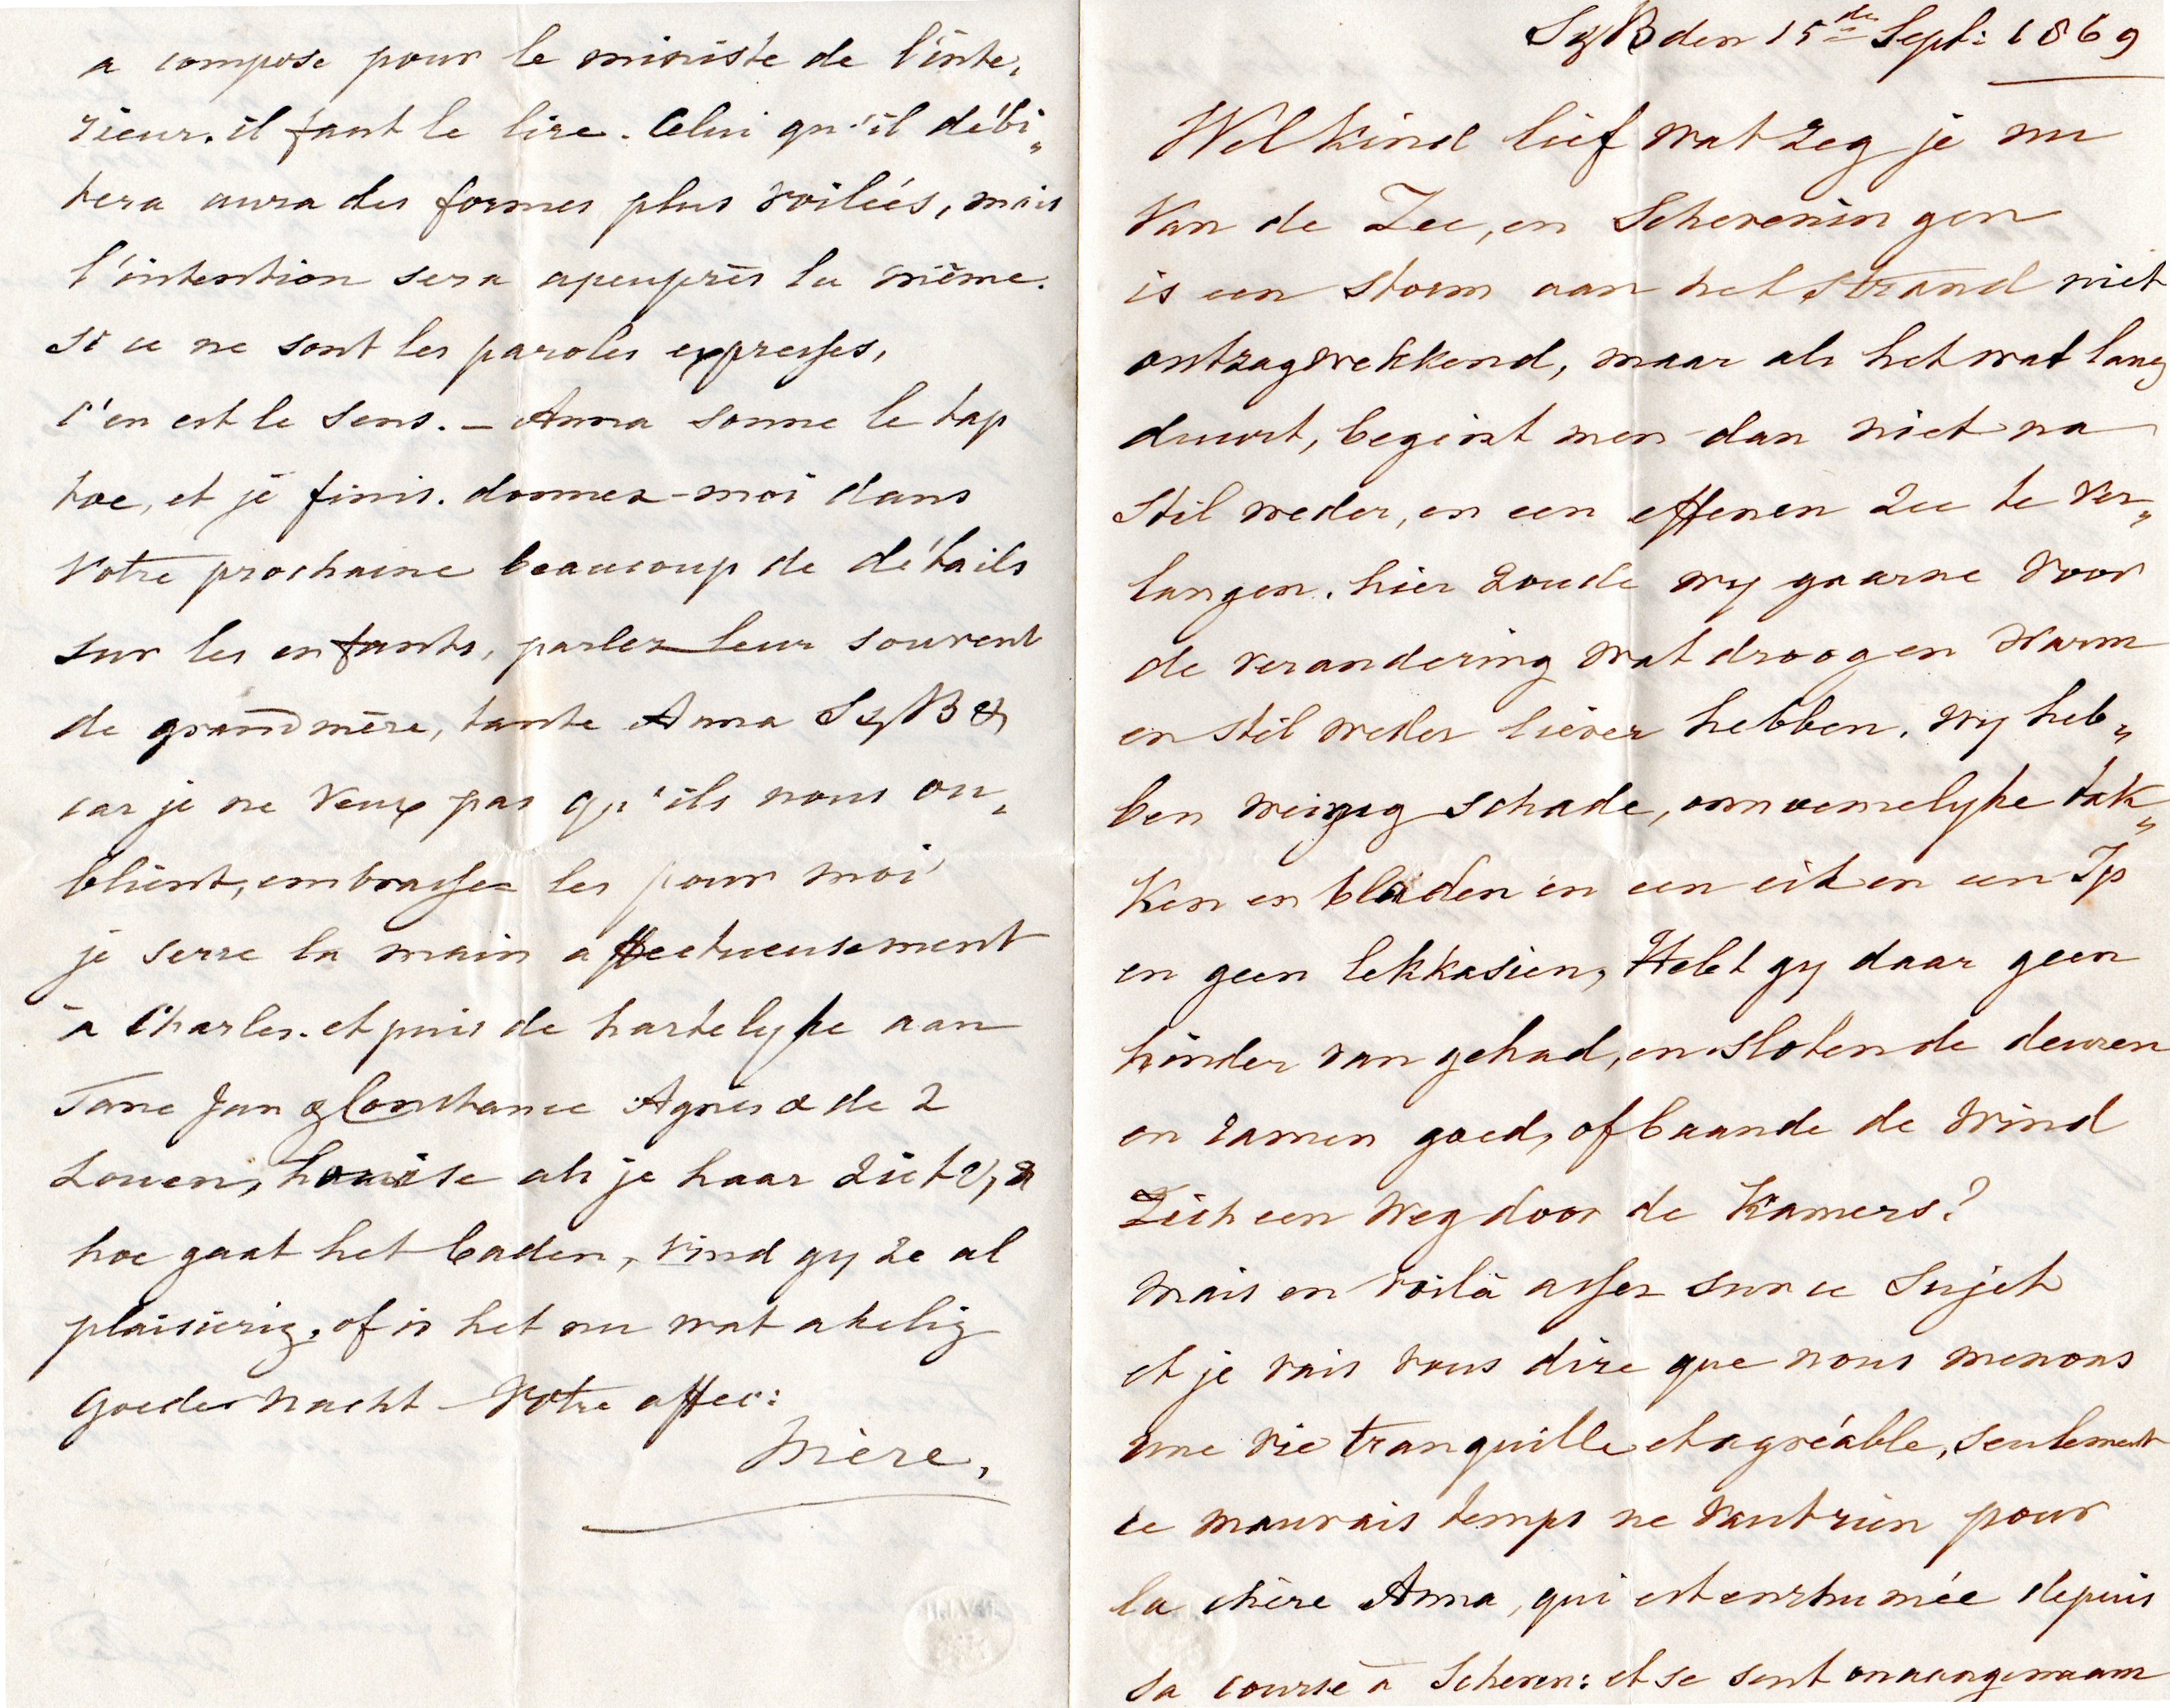 SzB den 15de Sept: 1869
Wel kind lief wat zeg je nu
van de Zee, en Scheveningen
is een storm aan het strand niet
ontzagwekkend, maar als het wat lang
duurt, begint men dan niet na
stil weder, en een effenen zee te ver„
langen. hier zoude wy gaarne voor
de verandering wat droog en warm
en stil weder liever hebben, wy heb„
ben weinig schade, voornoemelyke tak„
ken en bladen en een eik en een Ip
en geen lekkasien, Hebt gy daar geen
hinder van gehad, en sloten de deuren
en ramen goed, of baande de wind
zich een weg door de Kamers?
Mais en voilà assez sur ce sujet
et je vais vous dire que nous menons
une vie tranquille et agréable, seulement
ce mauvais temps ne vaut rien pour
la chère Anna, qui est enrhumée depuis
sa course à Scheven: et se sent onaangenaam
a compose pour le ministe de l'inte„
rieur. il faut le lire. Celui qu'il débi„
tera aura des formes plus voilées, mais
l'intention sera apeuprès la même.
si ce ne sont les paroles expresses,
c'en est le sens. – Anna sonne le tap
toe, et je finis. donnez-moi dans
votre prochaine beaucoup de détails
sur les enfants, parlez leur souvent
de grandmère, tante Anna SzB &
car je ne veux pas qu'ils nous ou„
blient, embrassez les pour moi
je serre la main affectueusement
à Charles. et puis de hartelyke aan
Jane Jan & Constance Agnes & de 2
Louen, Louise als je haar ziet &, &
hoe gaat het baden, vind gy ze al
plaisierig, of is het nu wat akelig
goeder nacht – Votre affec:
Mère,